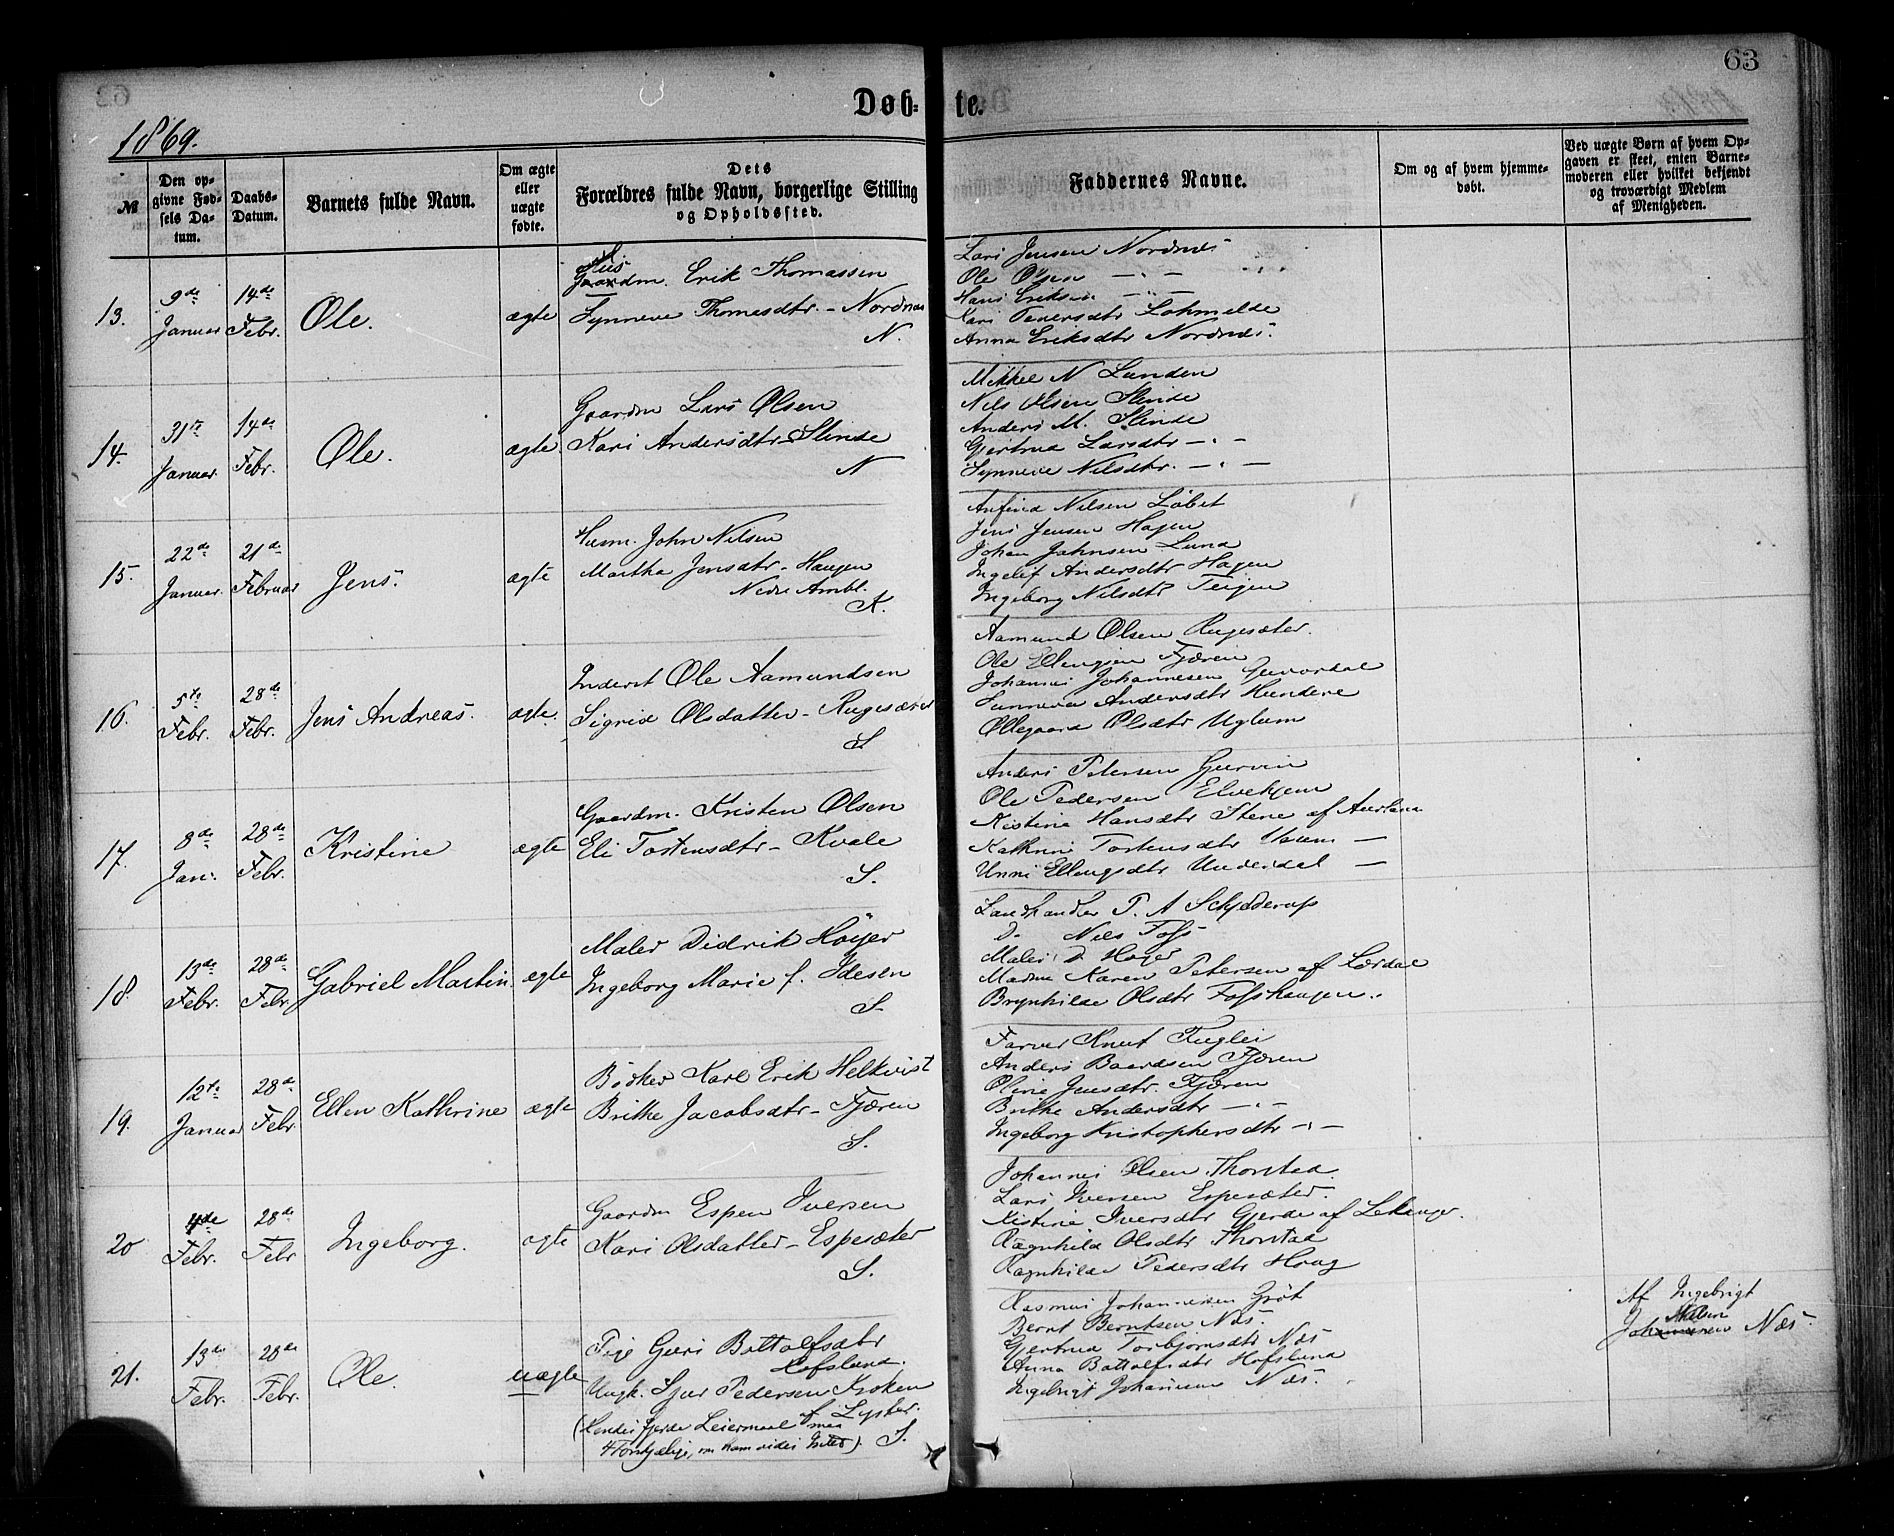 63
Døb-te.
1869.
№
Den opgivne Fødsels Datum.
Daabs-Datum.
Barnets fulde Navn.
Om ægte eller uægte fødte.
Dets Forældres fulde Navn, borgerlige Stilling og Opholdssted.
Faddernes Navne.
Om og af hvem hjemmedøbt.
Ved uægte Børn af hvem Opgaven er skeet, enten Barnemoderen eller hvilket bekjendt og troværdigt Medlem af Menigheden.
13.
9de Januar
14de Febr.
Ole.
ægte
Hus
Gaardm. Erik Thomassen
Synneve Thomasdtr. - Nordnæs
N.
Lars Jensen Nordnæs
Ole Olsen — " —
Hans Eriksen — " —
Kari Pedersdtr Lohmelde
Anna Eriksdtr Nordnæs.
14.
31te Januar.
14de Febr.
Ole.
ægte
Gaardm Lars Olsen
Kari Andersdtr - Slinde
N
Mikkel N Lunden
Nils Olsen Slinde
Anders M. Slinde
Gjertrud Larsdtr — " —
Synneve Nilsdtr. — " —
15.
22de Januar.
21de Februar
Jens.
ægte
Husm. John Nilsen
Martha Jensdtr - Haugen
Nedre Ambl.
K.
Anfind Nilsen
Jens Jensen Hagen
Johan Johnsen Lund
Andersdtr Hagen
Ingeborg Nilsdtr Teigen
16.
5te Febr.
28de Febr.
Jens Andreas.
ægte.
Inderst Ole Aamundsen
Sigrid Olsdatter - Rugesæter
S
Aamund Olsen Rugesæter.
Ole Ellingsen Fjæren
Johannes Johannesen
Sunneva Andersdtr Hundere
Ollegaard Olsdtr Uglum
17.
8de Jan.
28de Febr.
Kristine
ægte
Gaardm. Kristen Olsen
Eli Tostensdtr - Kvale
S.
Anders Petersen Gurvin
Ole Pedersen Elvekjem
Kistine Hansdtr Stene af Aurland
Kathrine Tostensdtr —
Unni Ellingsdtr Underdal —
18.
13de Febr.
28de Febr
Gabriel Martin.
ægte
Maler Didrik Höyer
Ingeborg Marie f. Idesen
S.
Landhandler P. A Schjelderup
D. Niels Foss
Maler D Höyer
Madme Karen Petersen af Lærdal
Brynhilde Olsdtr Fosshaugen.
19.
12te Januar
28de Febr
Ellen Kathrine
ægte
Bødker Karl Erik Helkvist
Brithe Jacobsdtr - Fjæren
S.
Farver Knut Fuglei
Anders Baardsen Fjæren
Oline Jensdtr. Fjæren
Brithe Andersdtr — " —
Ingeborg Kristophersdtr — " —
20
4de Febr.
28de Febr
Ingeborg.
ægte
Gaardm Espen Iversen
Kari Olsdatter - Espesæter
S.
Johannes Olsen Thorstad
Lars Iversen Espesæter.
Kistine Iversdtr Gjerde af Lekanger.
Ragnhild Olsdtr Thorstad
Ragnhilde Pedersdtr Haug
21.
13de Febr.
28de Febr.
Ole.
uægte
Pige Guri Bottolfsdtr
Hofslund.
Ungk. Sjur Pedersen Kroken
af Lyster.
(Hendes fjerde Leiermaal med
4 Forskjellige, om ham vides Intet). S.
Rasmus Johannesen Grøt
Bernt Berntsen Næs.
Gjertrud Torbjørnsdtr Næs
Anna Bottolfsdtr Hofslund
Ingebrigt Johannesen Næs.
Af Ingebrigt
Johannesen Næs.